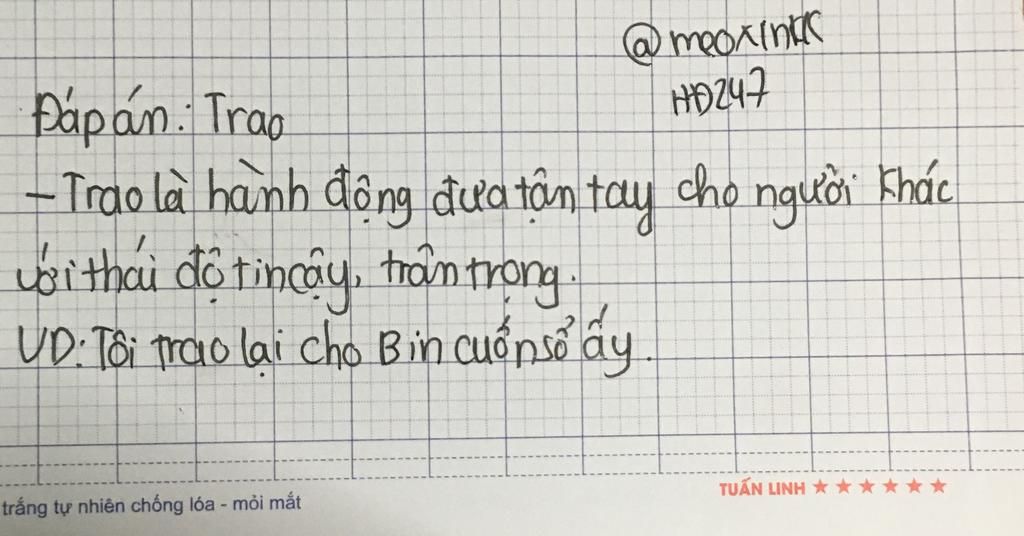 @meoxinkk
HĐ247
Đáp án: Trao
- Trao là hành động đưa tận tay cho người khác
với thái độ tin cậy, trân trọng.
VD: Tôi trao lại cho Bin cuốn sổ ấy.
trắng tự nhiên chống lóa - mỏi mắt
TUẤN LINH ★★★★★★